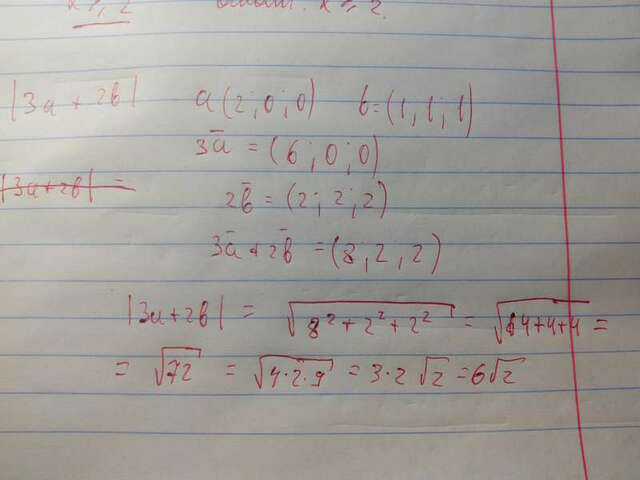 x ≥ 2 Ответ: x ≥ 2.
|3a + 2b| a(2; 0; 0) b=(1, 1; 1)
3a̅ = (6; 0; 0)
|3a+2b| =
2b̅ = (2; 2; 2)
3a̅ + 2b̅ = (8; 2, 2)
|3a+2b| = √(8² + 2² + 2²) = √(64+4+4) =
= √72 = √(4·2·9) = 3·2√2 = 6√2